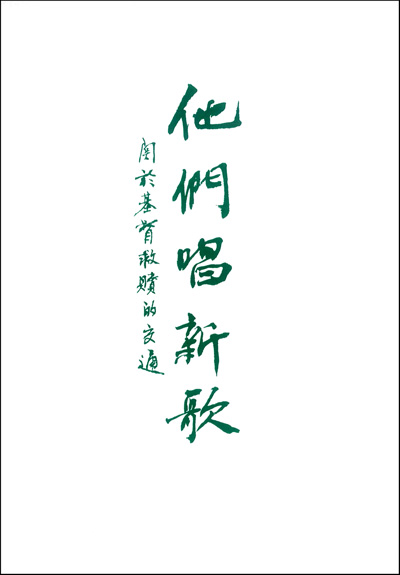 他們唱新歌
關於基督救贖的交通